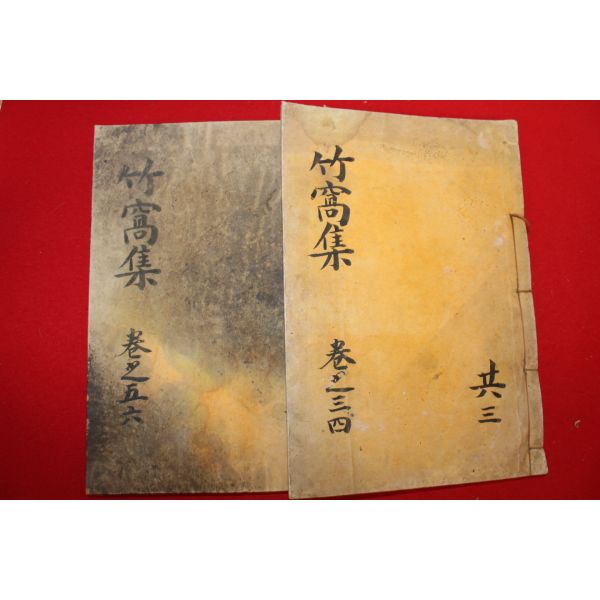 竹窩集
卷之三四
共三
竹窩集
卷之五六